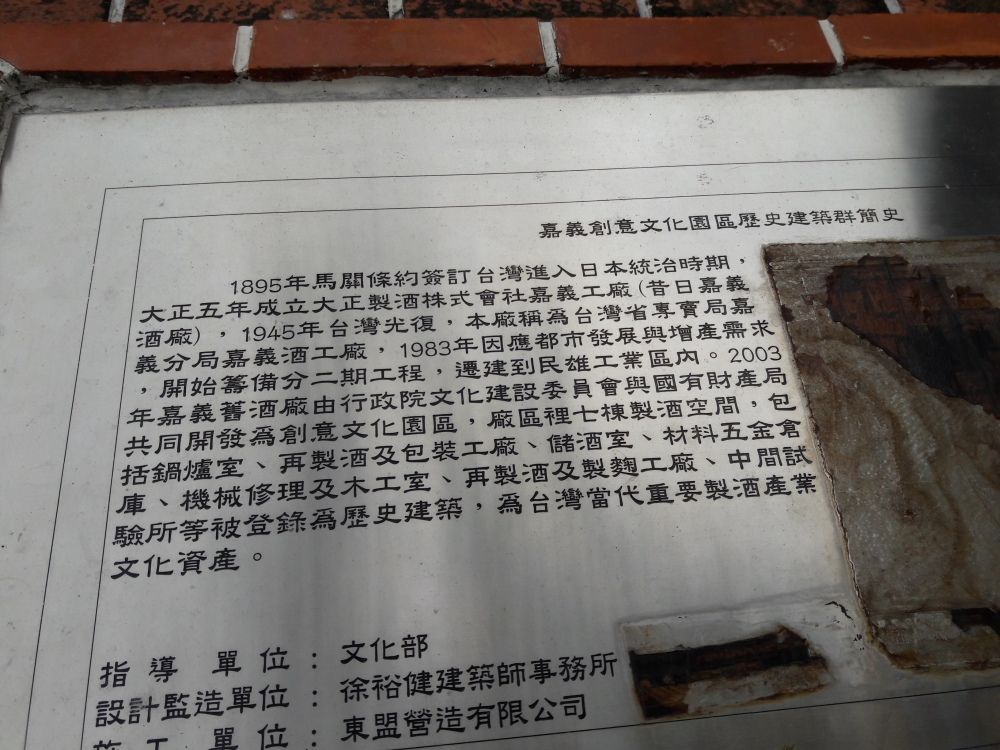 嘉義創意文化園區歷史建築群簡史
1895年馬關條約簽訂台灣進入日本統治時期，
大正五年成立大正製酒株式會社嘉義工廠(昔日嘉義
酒廠)，1945年台灣光復，本廠稱為台灣省專賣局嘉
義分局嘉義酒工廠，1983年因應都市發展與增產需求
，開始籌備分二期工程，遷建到民雄工業區內。2003
年嘉義舊酒廠由行政院文化建設委員會與國有財產局
共同開發為創意文化園區，廠區裡七棟製酒空間，包
括鍋爐室、再製酒及包裝工廠、儲酒室、材料五金倉
庫、機械修理及木工室、再製酒及製麴工廠、中間試
驗所等被登錄為歷史建築，為台灣當代重要製酒產業
文化資產。
指導單位：文化部
設計監造單位：徐裕健建築師事務所
施工單位：東盟營造有限公司